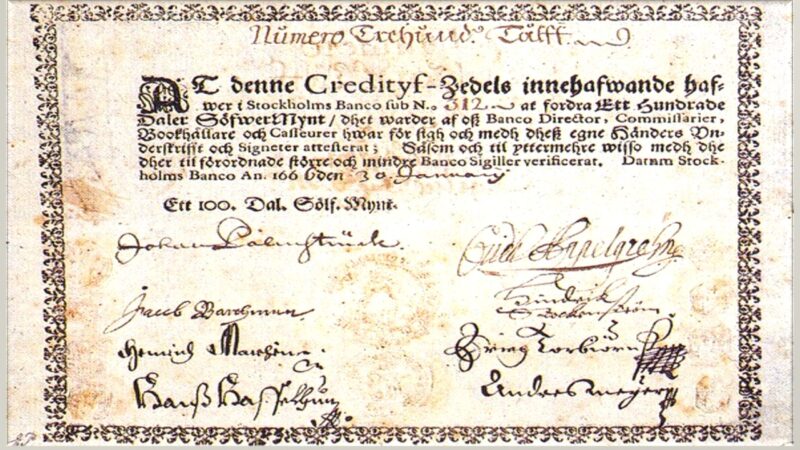 Numero Trehund. Tålff.
AT denne Credityf-Zedels innehafwande haf-
wer i Stockholms Banco sub N.o 312 at fordra Ett Hundrade
Daler SölfwerMynt / dhet warder af oß Banco Director, Commissarier,
Bookhållare och Casseurer hwar för sigh och medh dheß egne Händers Vn-
derskrifft och Signeter attesterat; Såsom och til yttermehre wisso medh dhe
dher til förordnade större och mindre Banco Sigiller verificerat. Datum Stock-
holms Banco An. 1666 den 30 January
Ett 100. Dal. Sölf. Mynt.
Johan Palmstruck
Jacob Barchman
Hindrik